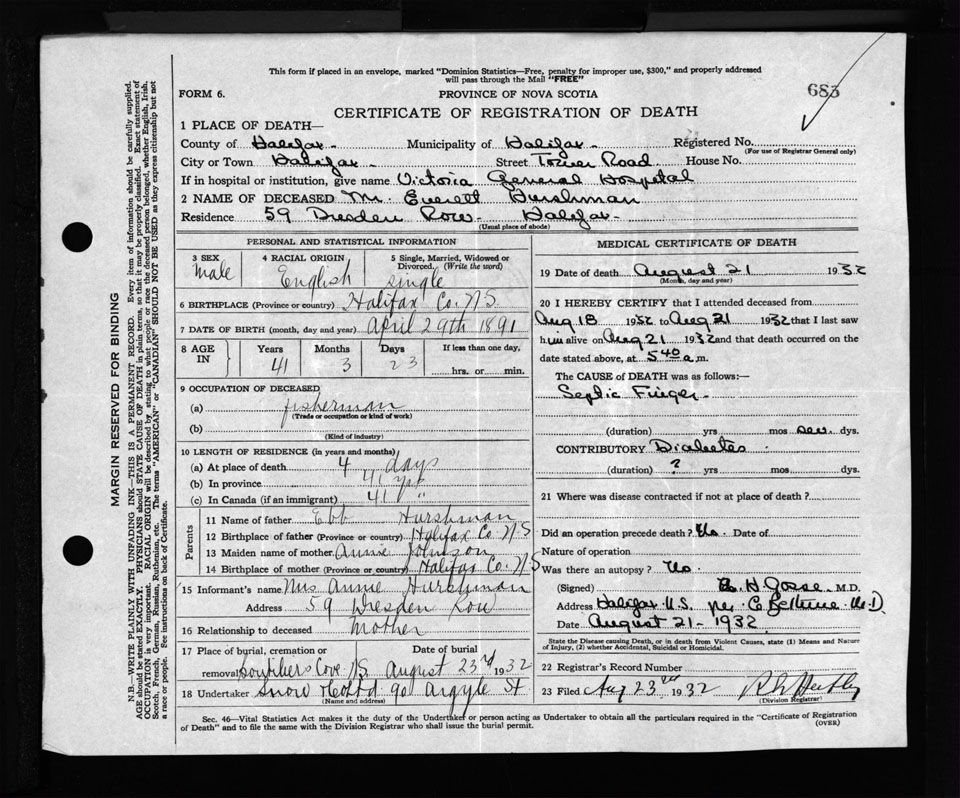 This form if placed in an envelope, marked "Dominion Statistics—Free, penalty for improper use, $300," and properly addressed
will pass through the Mail "FREE"
683
FORM 6.
PROVINCE OF NOVA SCOTIA
CERTIFICATE OF REGISTRATION OF DEATH
1 PLACE OF DEATH—
County of Halifax Municipality of Halifax Registered No.
(For use of Registrar General only)
City or Town Halifax Street Tower Road House No.
If in hospital or institution, give name Victoria General Hospital
2 NAME OF DECEASED Mr. Everett Hurshman
Residence 59 Dresden Row - Halifax -
(Usual place of abode)
PERSONAL AND STATISTICAL INFORMATION
3 SEX 4 RACIAL ORIGIN 5 Single, Married, Widowed or
Divorced. (Write the word)
Male English single
6 BIRTHPLACE (Province or country) Halifax Co. N.S.
7 DATE OF BIRTH (month, day and year) April 29th 1891
8 AGE IN Years Months Days If less than one day,
41 3 23 hrs. or min.
9 OCCUPATION OF DECEASED
(a) fisherman
(Trade or occupation or kind of work)
(b)
(Kind of industry)
10 LENGTH OF RESIDENCE (in years and months)
(a) At place of death 4 days
(b) In province 41 yrs
(c) In Canada (if an immigrant) 41 "
Parents
11 Name of father Ebb Hurshman
12 Birthplace of father (Province or country) Halifax Co N.S
13 Maiden name of mother Annie Johnson
14 Birthplace of mother (Province or country) Halifax Co. N.S
15 Informant's name Mrs Annie Hurshman
Address 59 Dresden Row
16 Relationship to deceased Mother
17 Place of burial, cremation or Date of burial
removal Boutiliers Cove N.S. August 23rd 1932
18 Undertaker Snow & Co Ltd 90 Argyle St
(Name and address)
MEDICAL CERTIFICATE OF DEATH
19 Date of death August 21 1932
(Month, day and year)
20 I HEREBY CERTIFY that I attended deceased from
Aug 18 1932 to Aug 21 1932 that I last saw
him alive on Aug 21 1932 and that death occurred on the
date stated above, at 5 40 a.m.
The CAUSE of DEATH was as follows:—
Septic Finger -
(duration) yrs mos dys.
CONTRIBUTORY Diabetes
(duration) ? yrs mos dys.
21 Where was disease contracted if not at place of death ?
Did an operation precede death ? No. Date of
Nature of operation
Was there an autopsy ? No
(Signed) H Gosse M.D.
Address Halifax N.S. per M.D.
Date August 21 - 1932
State the Disease causing Death, or in death from Violent Causes, state (1) Means and Nature
of Injury, (2) whether Accidental, Suicidal or Homicidal.
22 Registrar's Record Number
23 Filed Aug 23rd 1932
(Division Registrar)
Sec. 46—Vital Statistics Act makes it the duty of the Undertaker or person acting as Undertaker to obtain all the particulars required in the "Certificate of Registration
of Death" and to file the same with the Division Registrar who shall issue the burial permit.
(OVER)
MARGIN RESERVED FOR BINDING
N.B.—WRITE PLAINLY WITH UNFADING INK—THIS IS A PERMANENT RECORD. Every item of information should be carefully supplied.
AGE should be stated EXACTLY. PHYSICIANS should STATE CAUSE OF DEATH in plain terms, so that it may be properly classified. Exact statement of
OCCUPATION is very important. RACIAL ORIGIN will be described by stating to what people or race the deceased person belonged, whether English, Irish,
Scotch, French, German, Russian, Ruthenian, etc. The terms "AMERICAN" or "CANADIAN" SHOULD NOT BE USED as they express citizenship but not
a race or people. See instructions on back of Certificate.